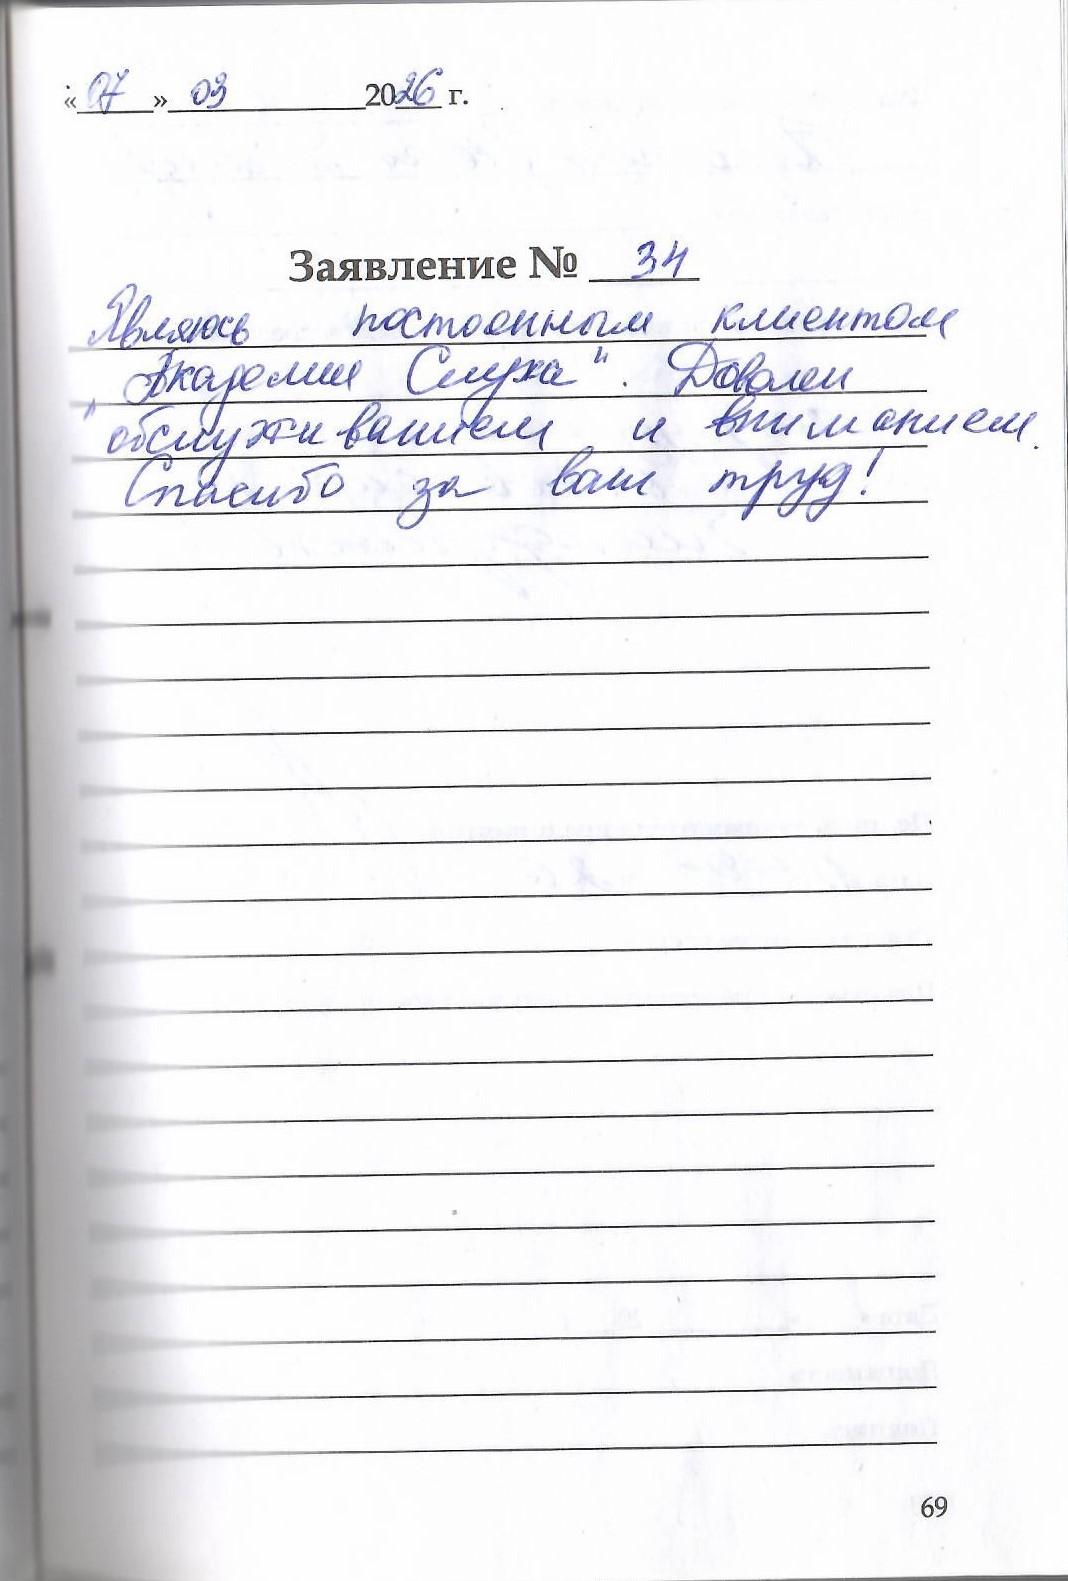 «07» 03 2026 г.
Заявление № 34
Являюсь постоянным клиентом
„Академии Слуха“. Доволен
обслуживанием и вниманием.
Спасибо за ваш труд!
69